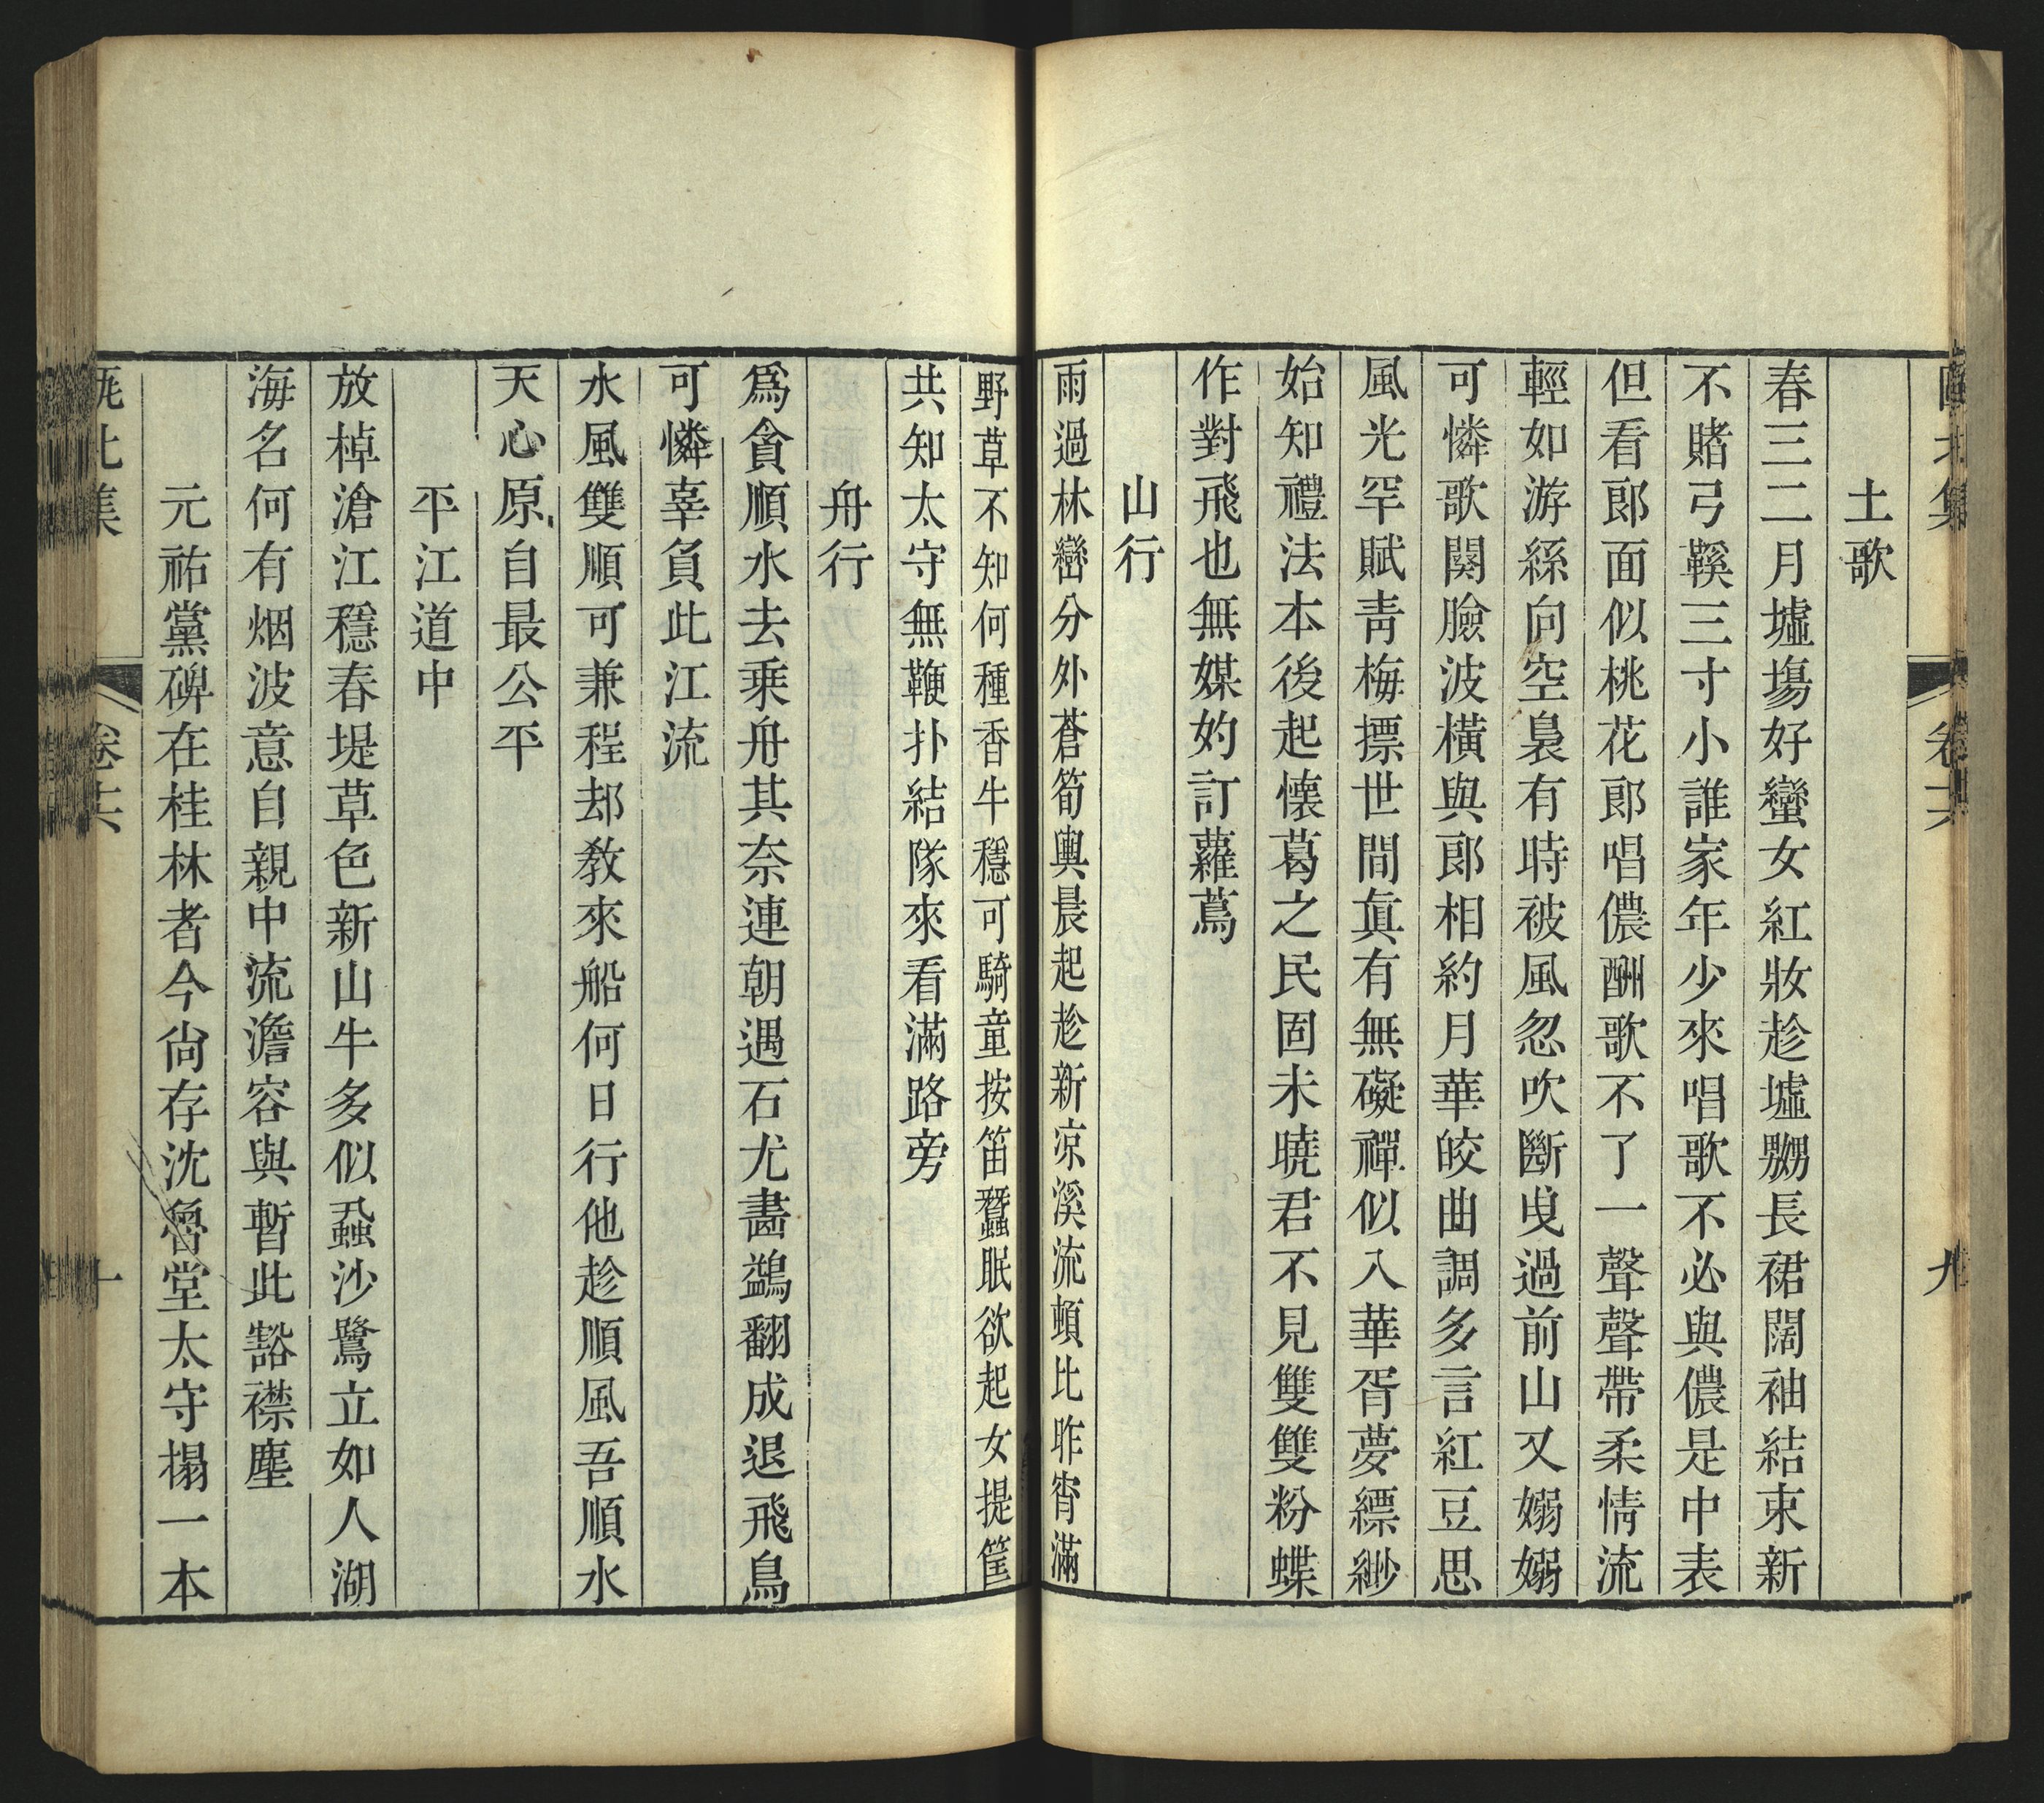 土歌
春三二月墟場好蠻女紅妝趁墟嬲長裙闊袖結束新
不賭弓鞵三寸小誰家年少來唱歌不必與儂是中表
但看郎面似桃花郎唱儂酬歌不了一聲聲帶柔情流
輕如游絲向空裊有時被風忽吹斷曳過前山又嫋嫋
可憐歌闋臉波橫與郎相約月華皎曲調多言紅豆思
風光罕賦靑梅摽世間眞有無礙禪似入華胥夢縹緲
始知禮法本後起懷葛之民固未曉君不見雙雙粉蝶
作對飛也無媒妁訂蘿蔦
山行
雨過林巒分外蒼筍輿晨起趁新凉溪流頓比昨宵滿
野草不知何種香牛穩可騎童按笛蠶眠欲起女提筐
共知太守無鞭扑結隊來看滿路旁
舟行
爲貪順水去乘舟其奈連朝遇石尤畵鷁翻成退飛鳥
可憐辜負此江流
水風雙順可兼程却敎來船何日行他趁順風吾順水
天心原自最公平
平江道中
放棹滄江穩春堤草色新山牛多似蝨沙鷺立如人湖
海名何有烟波意自親中流澹容與暫此豁襟塵
元祐黨碑在桂林者今尙存沈魯堂太守搨一本
北集
卷十六
九